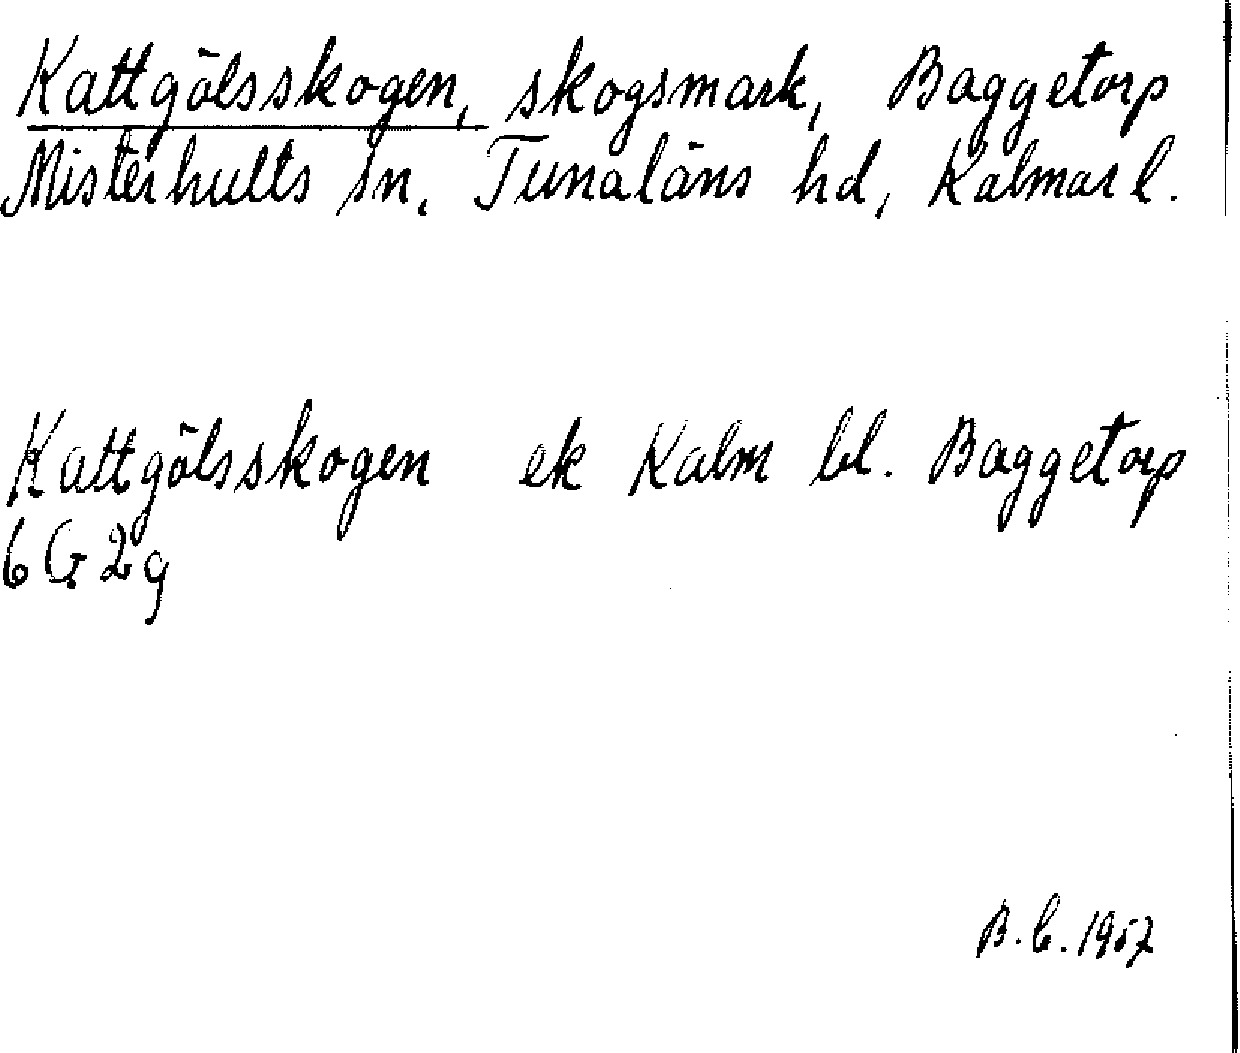 Kattgölsskogen, skogsmark, Baggetorp
Misterhults sn, Tunaläns hd, Kalmar l.
Kattgölsskogen ek Kalm bl. Baggetorp
6G2g
B.C. 1957